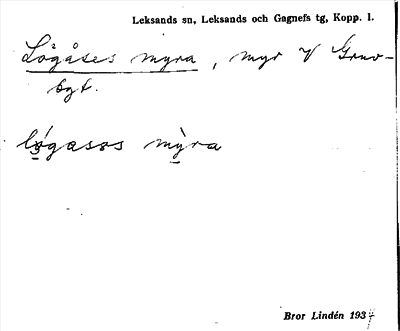 Leksands sn, Leksands och Gagnefs tg, Kopp. l.
Lögåses myra, myr V Gruv-
byt.
lógasəs mỳra
Bror Lindén 1934